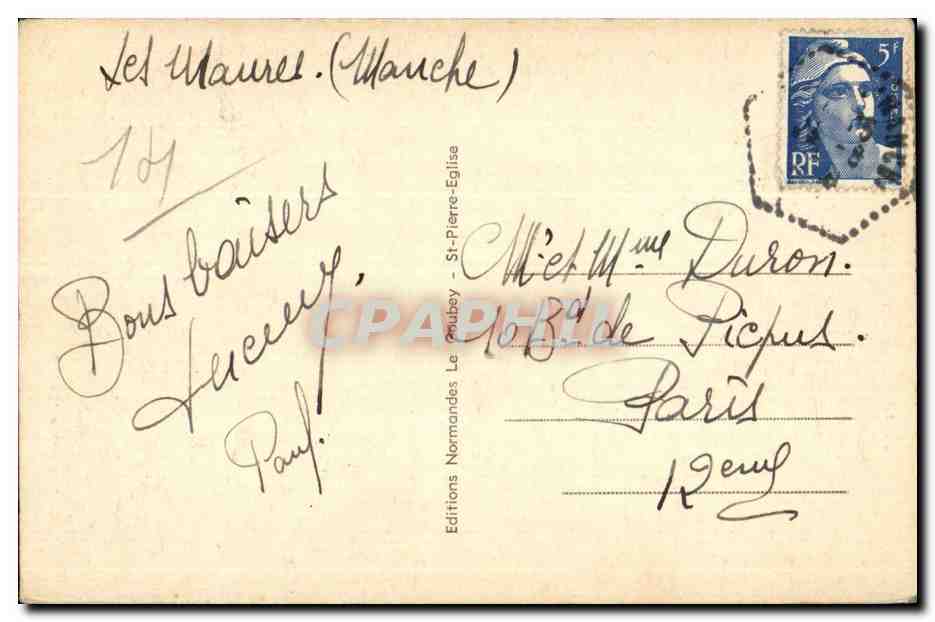 Les Maures. (Manche)
14
Bons baisers
Paul.
5F
RF
Editions Normandes Le Goubey - St-Pierre-Eglise
M. et Mme Duron.
10 Bd de Picpus.
Paris
12eme
CPAPHIL